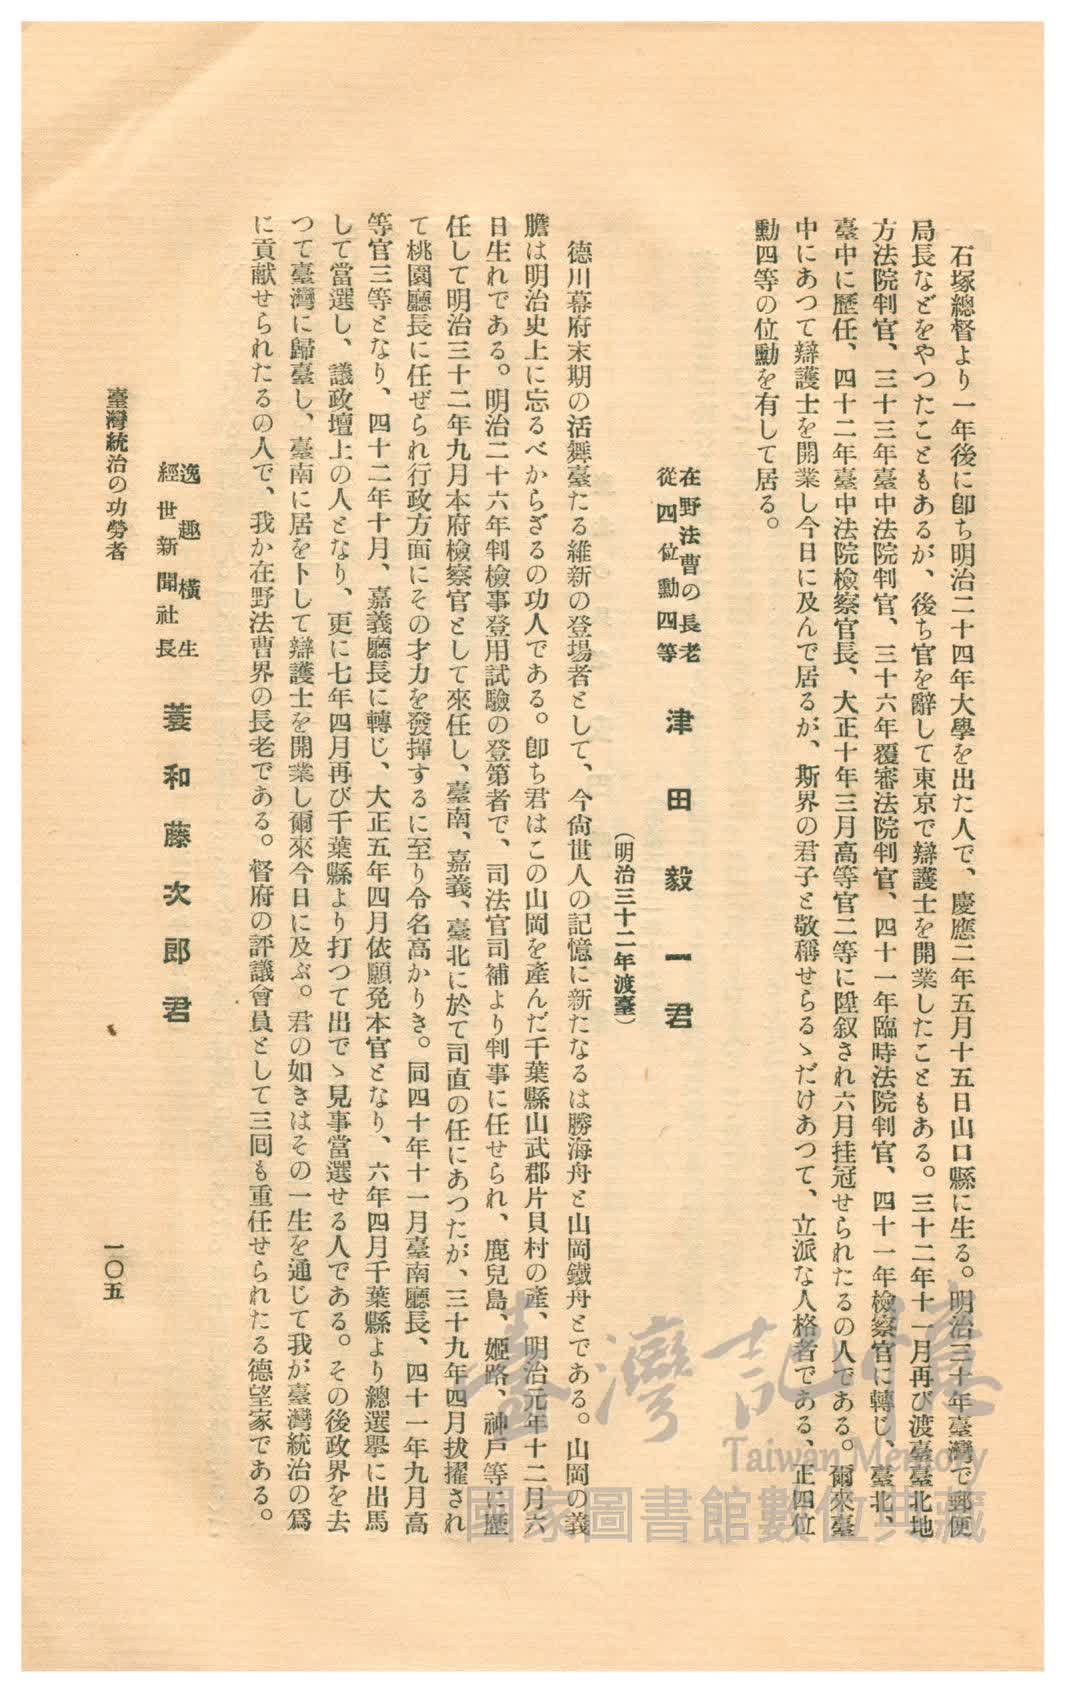 石塚總督より一年後に卽ち明治二十四年大學を出た人で、慶應二年五月十五日山口縣に生る。明治三十年臺灣で郵便
局長などをやつたこともあるが、後ち官を辭して東京で辯護士を開業したこともある。三十二年十一月再び渡臺臺北地
方法院判官、三十三年臺中法院判官、三十六年覆審法院判官、四十一年臨時法院判官、四十一年檢察官に轉じ、臺北、
臺中に歷任、四十二年臺中法院檢察官長、大正十年三月高等官二等に陞叙され六月挂冠せられたるの人である。爾來臺
中にあつて辯護士を開業し今日に及んで居るが、斯界の君子と敬稱せらるゝだけあつて、立派な人格者である、正四位
勳四等の位勳を有して居る。
在野法曹の長老
從四位勳四等
津田毅一君
（明治三十二年渡臺）
德川幕府末期の活舞臺たる維新の登場者として、今尙世人の記憶に新たなるは勝海舟と山岡鐵舟とである。山岡の義
膽は明治史上に忘るべからざるの功人である。卽ち君はこの山岡を產んだ千葉縣山武郡片貝村の產、明治元年十二月六
日生れである。明治二十六年判檢事登用試驗の登第者で、司法官司補より判事に任せられ、鹿兒島、姬路、神戸等に歷
任して明治三十二年九月本府檢察官として來任し、臺南、嘉義、臺北に於て司直の任にあつたが、三十九年四月拔擢され
て桃園廳長に任ぜられ行政方面にその才力を發揮するに至り令名高かりき。同四十年十一月臺南廳長、四十一年九月高
等官三等となり、四十二年十月、嘉義廳長に轉じ、大正五年四月依願免本官となり、六年四月千葉縣より總選擧に出馬
して當選し、議政壇上の人となり、更に七年四月再び千葉縣より打つて出でゝ見事當選せる人である。その後政界を去
つて臺灣に歸臺し、臺南に居をトして辯護士を開業し爾來今日に及ぶ。君の如きはその一生を通じて我が臺灣統治の爲
に貢献せられたるの人で、我か在野法曹界の長老である。督府の評議會員として三囘も重任せられたる德望家である。
逸趣橫生
經世新聞社長
蓑和藤次郎君
臺灣統治の功勞者
一〇五
臺灣記憶
Taiwan Memory
國家圖書館數位典藏